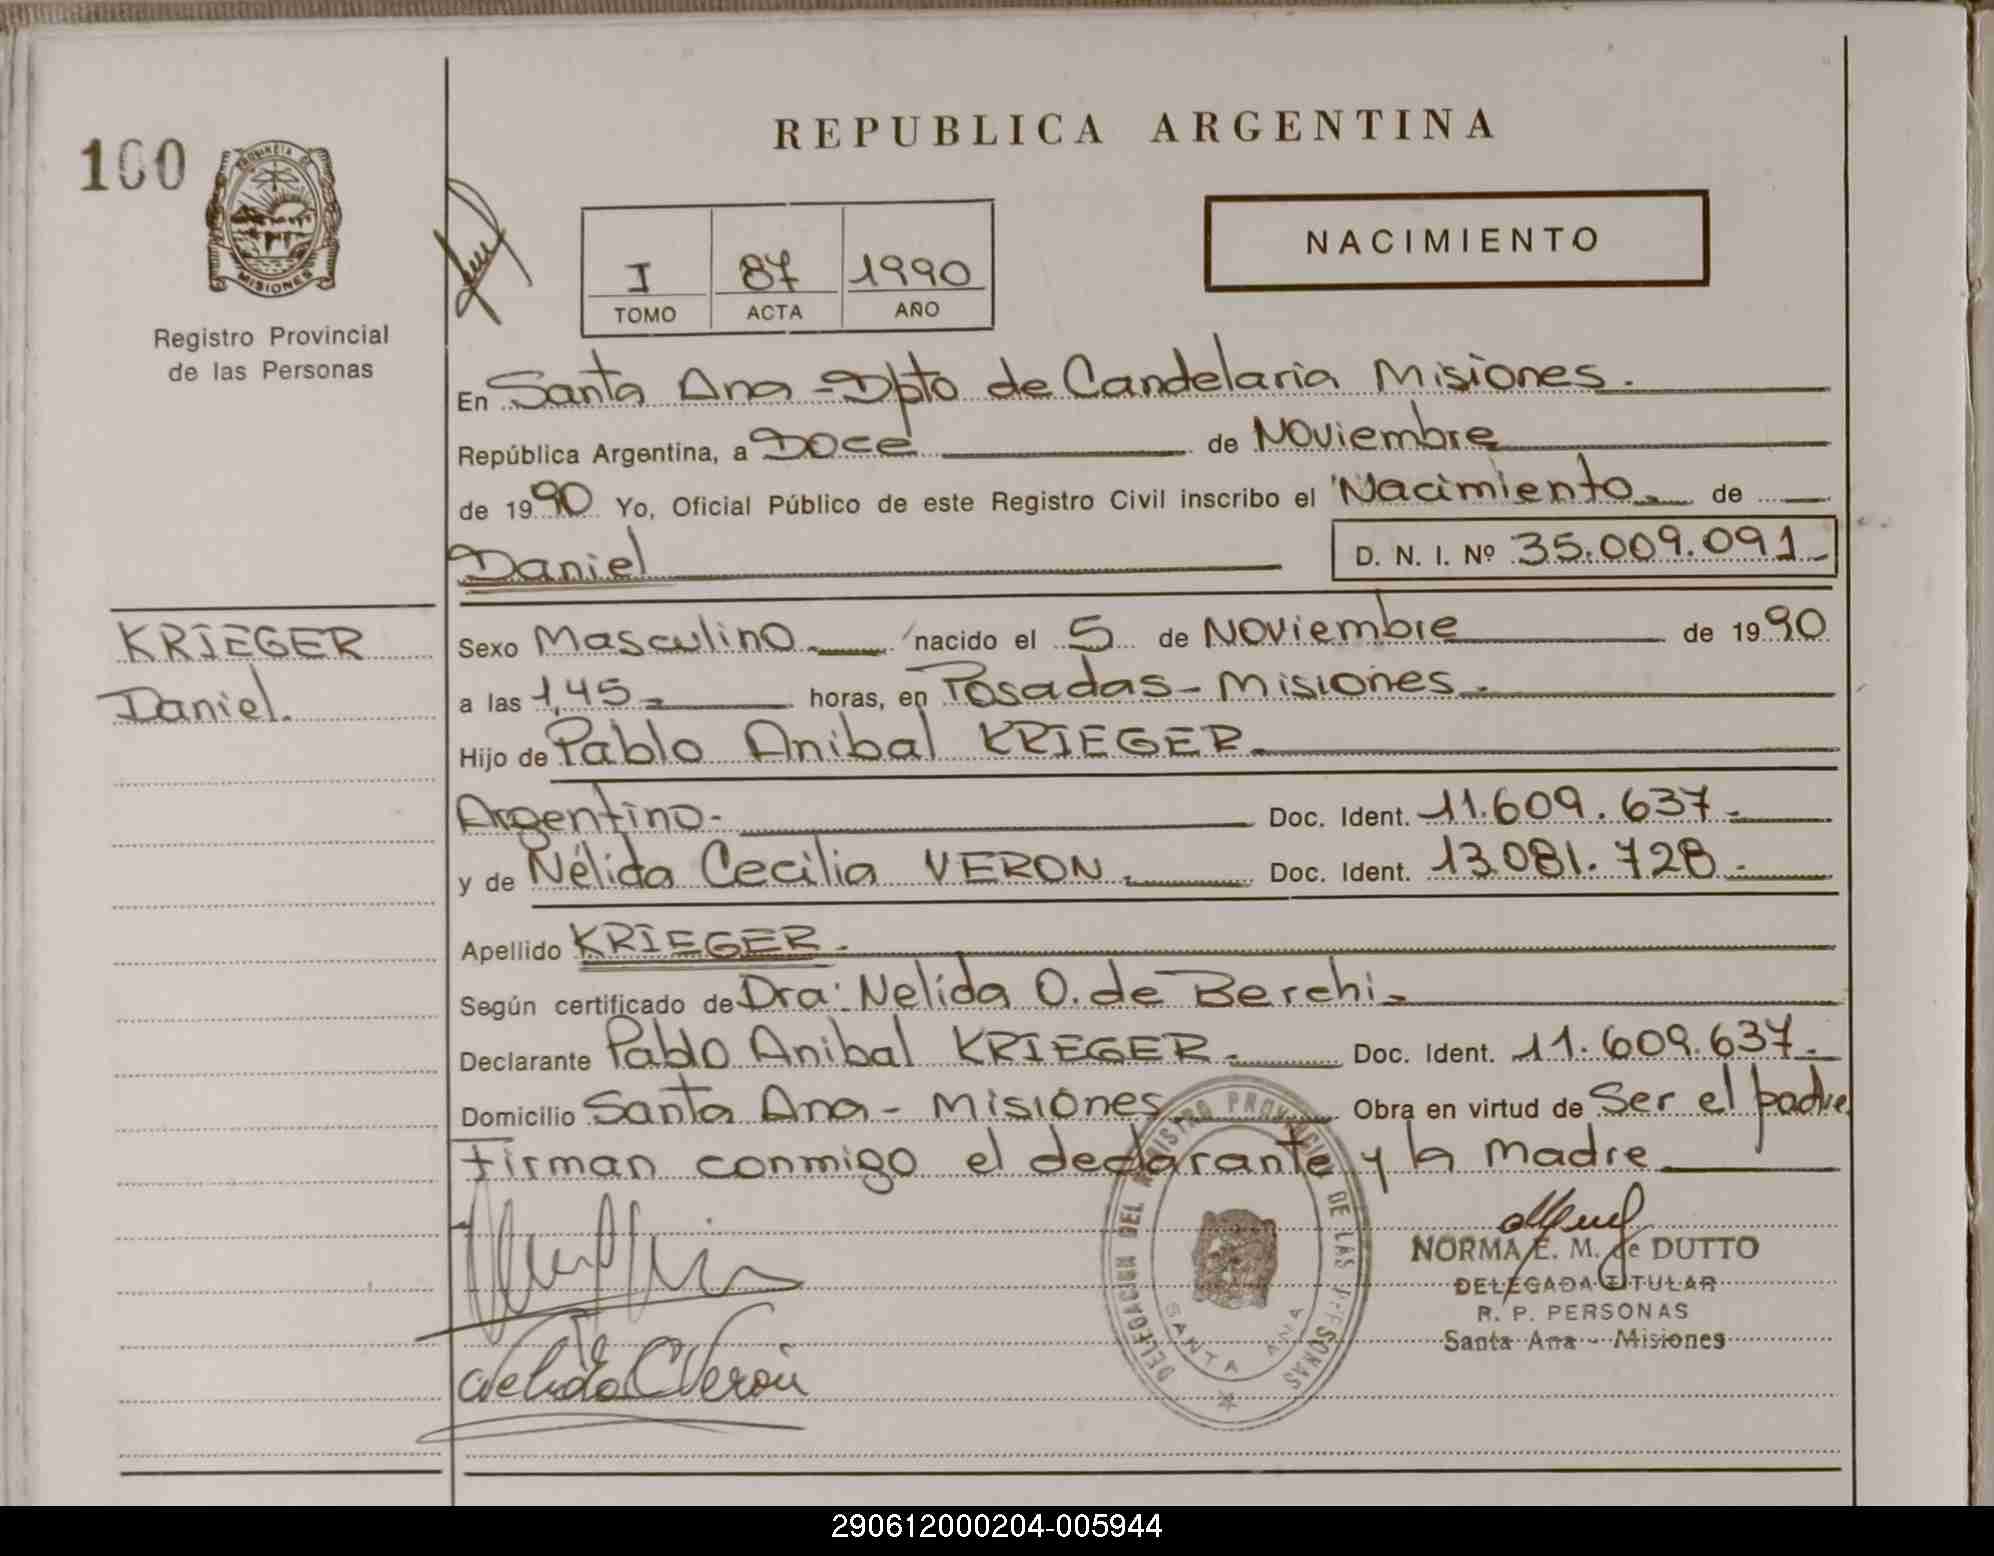 REPUBLICA ARGENTINA
100
PROVINCIA DE
MISIONES
Registro Provincial
de las Personas
I 87 1990
TOMO ACTA AÑO
NACIMIENTO
En Santa Ana - Dpto de Candelaria Misiones.
República Argentina, a Doce de Noviembre
de 1990 Yo, Oficial Público de este Registro Civil inscribo el Nacimiento de
Daniel D. N. I. Nº 35.009.091
KRIEGER
Daniel.
Sexo Masculino nacido el 5 de Noviembre de 1990
a las 1,45 horas, en Posadas - Misiones.
Hijo de Pablo Anibal KRIEGER
Argentino. Doc. Ident. 11.609.637
y de Nélida Cecilia VERON Doc. Ident. 13.081.728
Apellido KRIEGER.
Según certificado de Dra: Nelida O. de Berchi
Declarante Pablo Anibal KRIEGER Doc. Ident. 11.609.637
Domicilio Santa Ana - Misiones Obra en virtud de Ser el padre
Firman conmigo el declarante y la madre
DELEGACION DEL REGISTRO PROVINCIAL DE LAS PERSONAS
SANTA ANA
NORMA E. M. de DUTTO
DELEGADA TITULAR
R. P. PERSONAS
Santa Ana - Misiones
Nelida C Veron
290612000204-005944